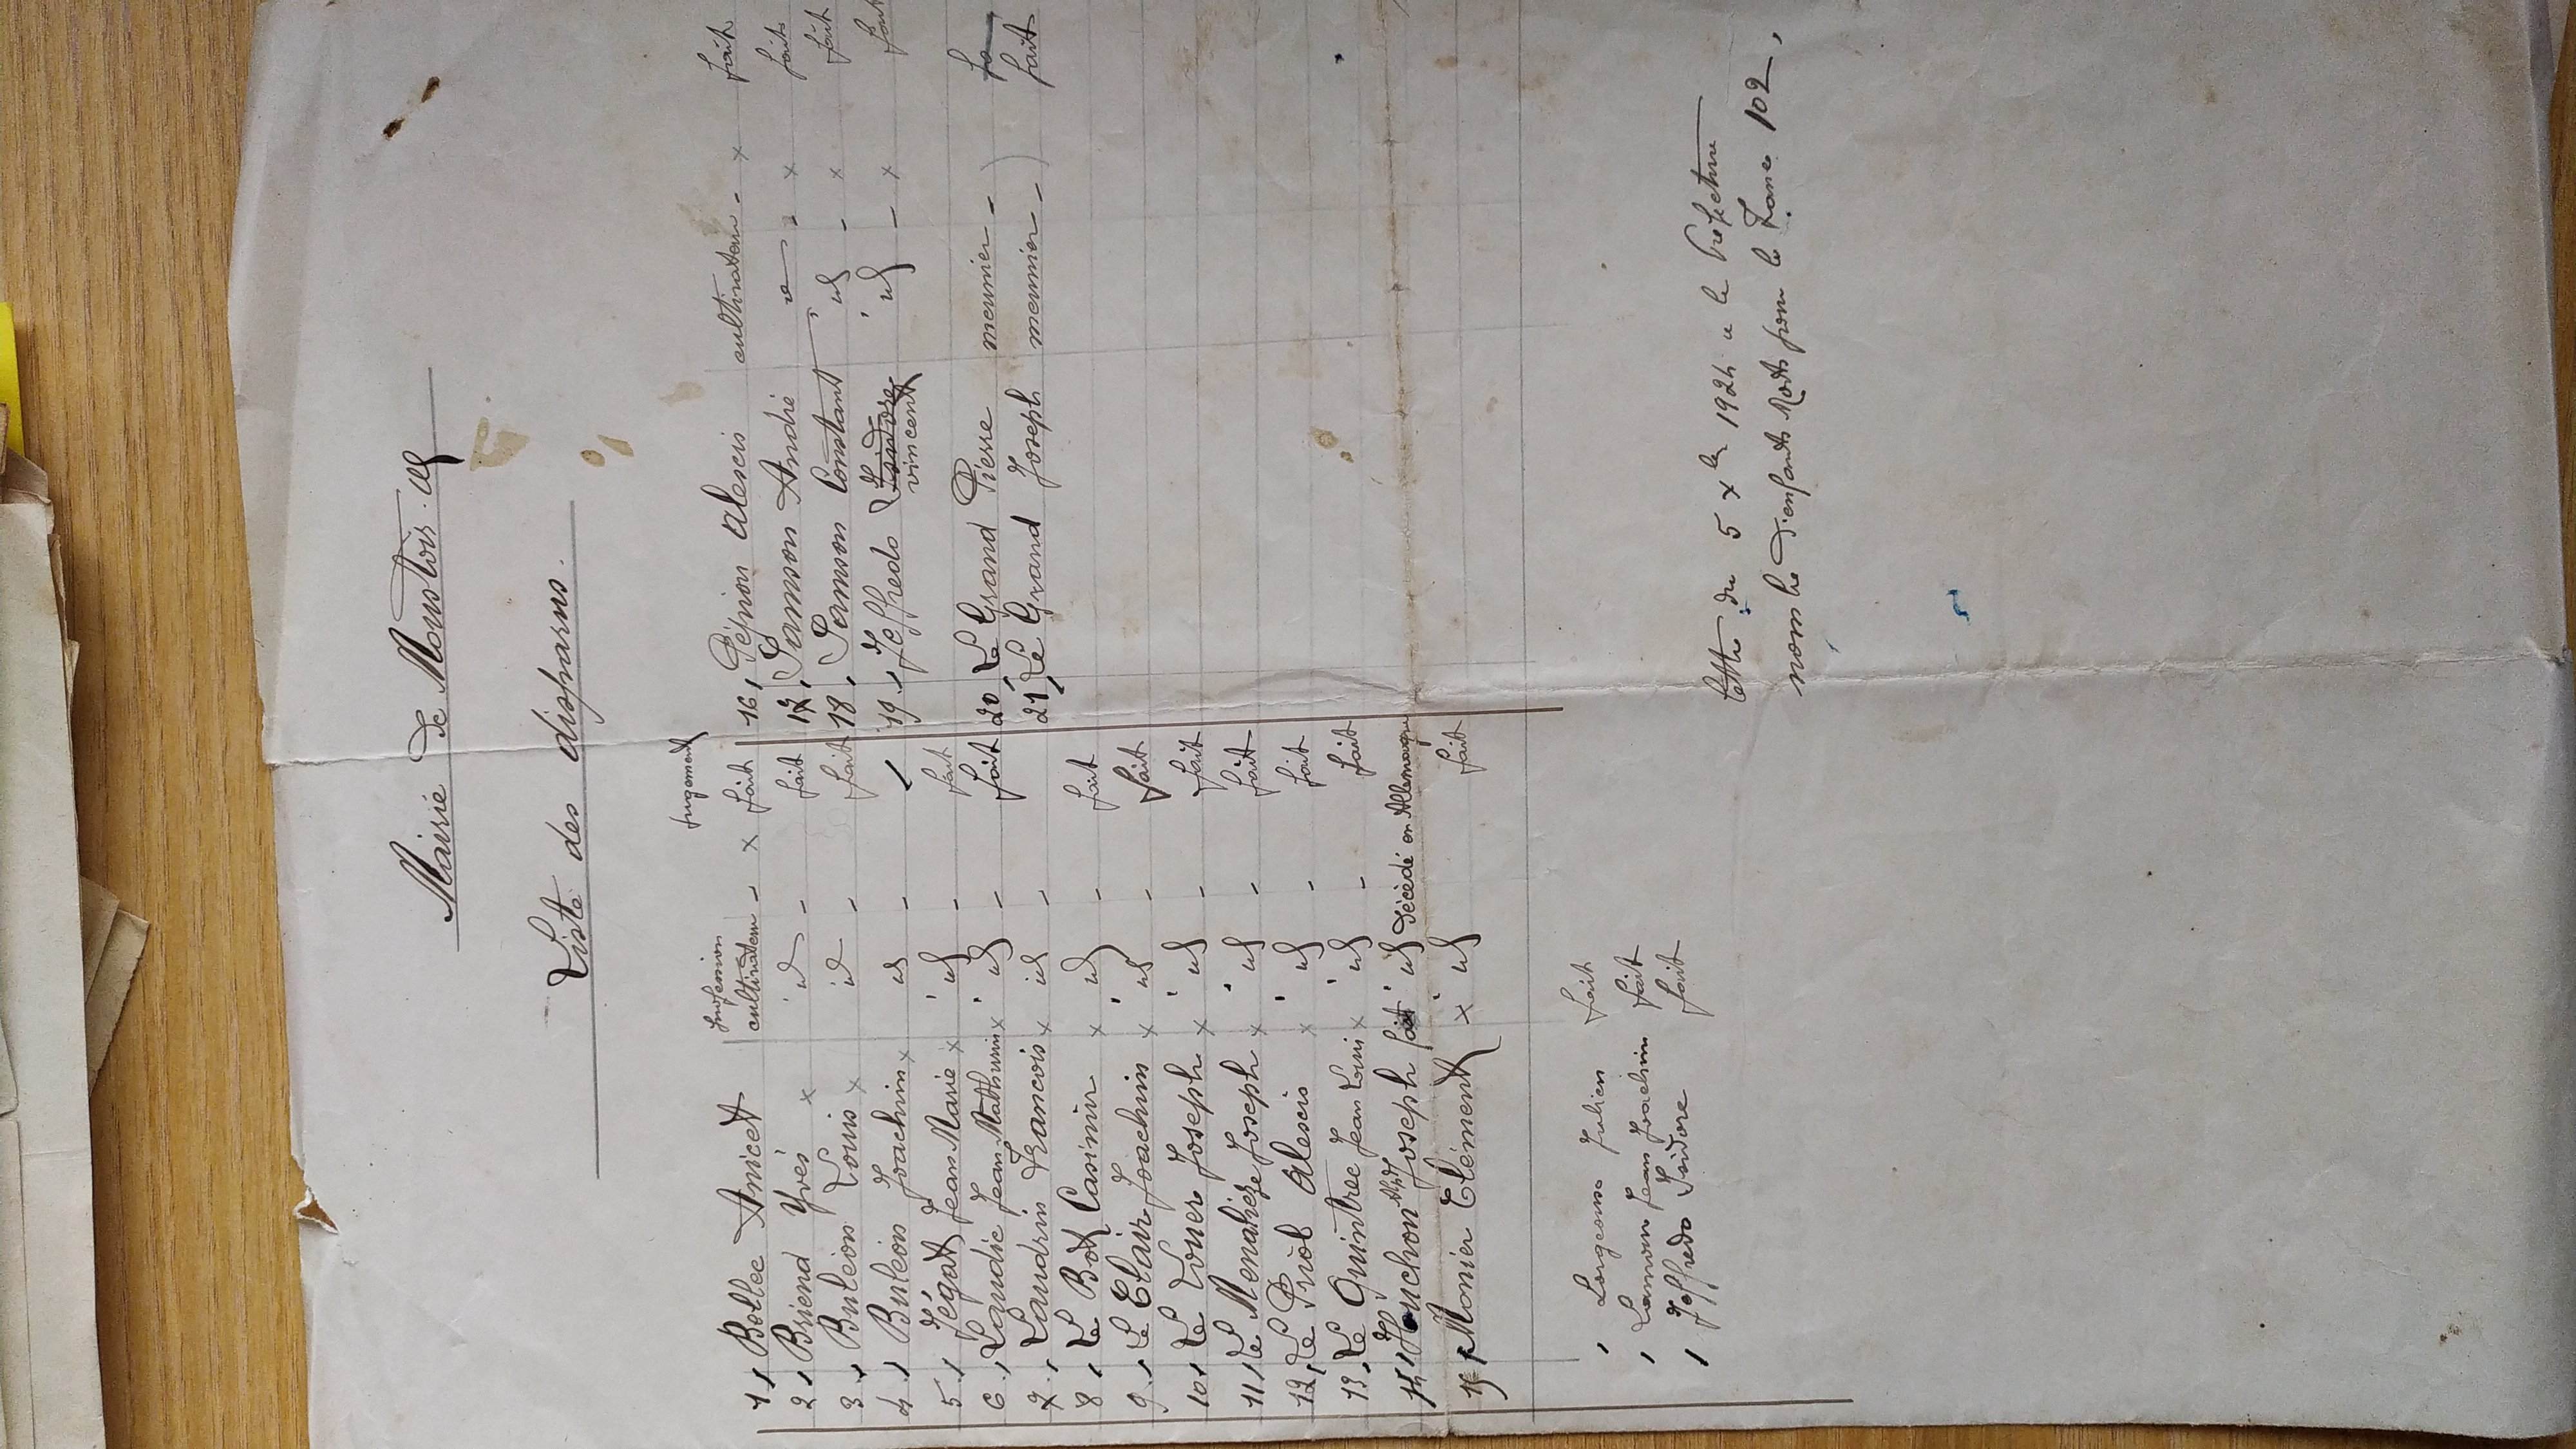 Mairie de Moustoir.
Liste des disparus.
profession jugement
1, Bellec Anicet cultivateur - x fait
2, Briend Yves x id - fait
3, Buléon Louis x id - fait
4, Buléon Joachim x id -
5, Jégat Jean Marie x id - fait
6, Laudic Jean Mathurin x id - fait
7, Laudrin Francois x id -
8, Le Bot Casimir x id - fait
9, Le Clair Joachim x id - fait
10, Le Louer Joseph x id - fait
11, Le Menahèze Joseph x id - fait
12, Le Priol Alexis x id - fait
13, Le Quintrec Jean Louis x id - fait
14, Huchon Alp Joseph fait id décédé en Allemagne
15, Monier Clément x id fait
16, Pépion Alexis cultivateur - x fait
17, Samson André - x fait
18, Samson Constant id - x fait
19, Jeffredo Isidore id - x fait
vincent
20, Le Grand Pierre meunier - fa
21, Le Grand Joseph meunier - fait
, Julien fait
, Jean Joachim fait
, Jeffredo Isidore fait
lettre du 5 xbre 1924 a la Préfecture
nombre d'enfants Morts pour la France 102,